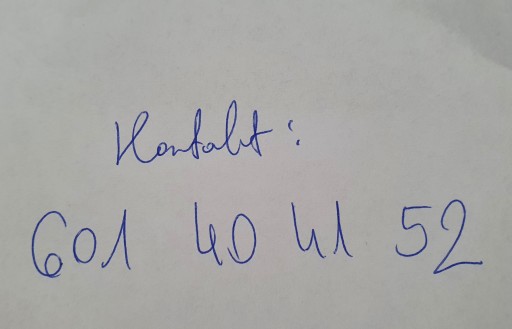 Kontakt:
601 40 41 52